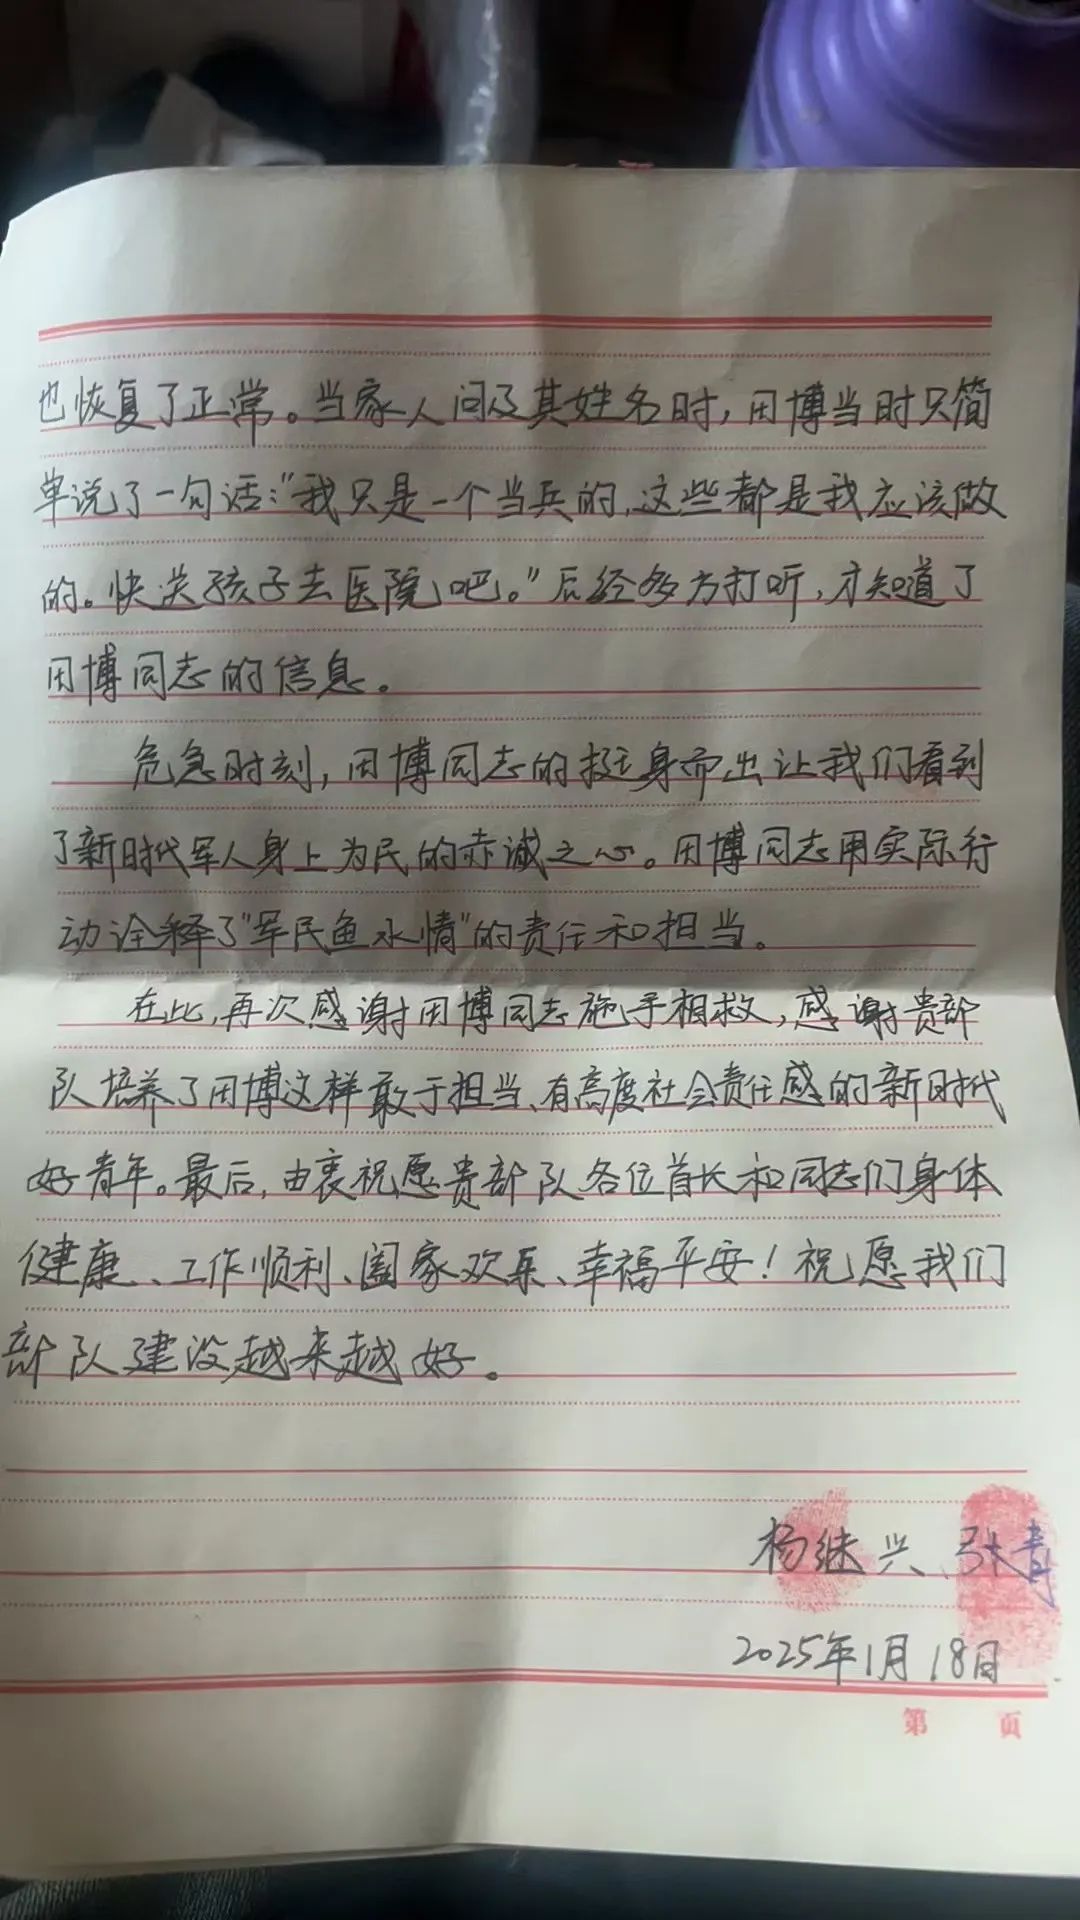 也恢复了正常。当家人问及其姓名时，田博当时只简
单说了一句话："我只是一个当兵的，这些都是我应该做
的。快送孩子去医院吧。"后经多方打听，才知道了
田博同志的信息。
危急时刻，田博同志的挺身而出让我们看到
了新时代军人身上为民的赤诚之心。田博同志用实际行
动诠释了"军民鱼水情"的责任和担当。
在此，再次感谢田博同志施手相救，感谢贵部
队培养了田博这样敢于担当、有高度社会责任感的新时代
好青年。最后，由衷祝愿贵部队各位首长和同志们身体
健康、工作顺利、阖家欢乐、幸福平安！祝愿我们
部队建设越来越好。
杨继兴、张青
2025年1月18日
第 页